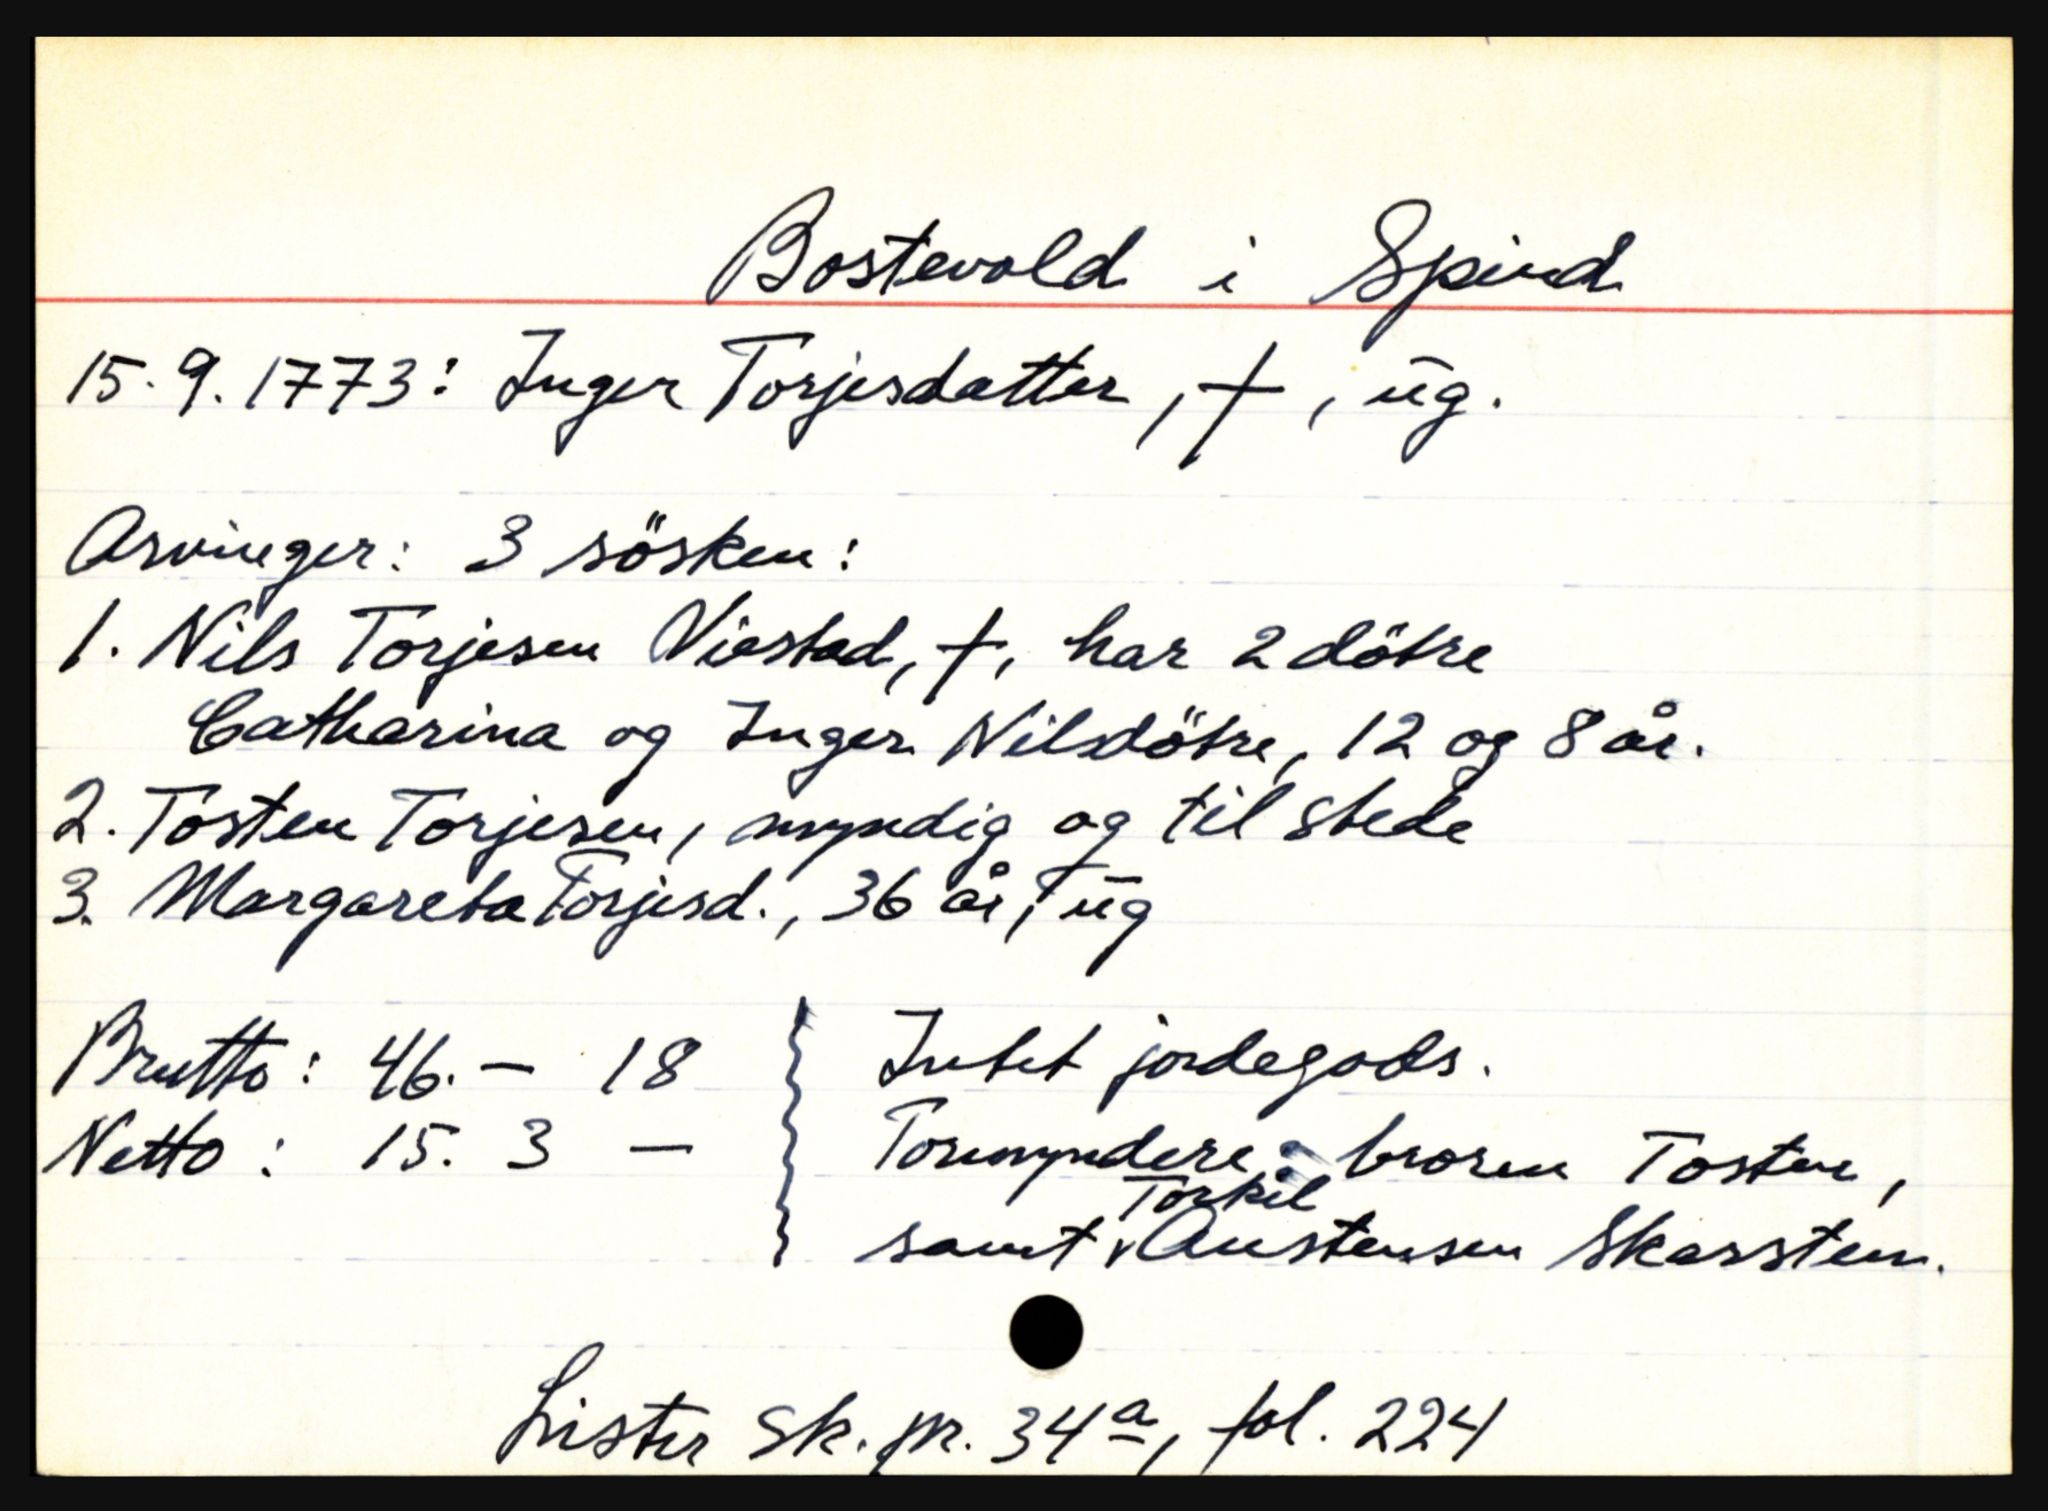 Bostevold i Spind
15.9.1773: Inger Torjesdatter, †, ūg.
Arvinger: 3 sösken:
1. Nils Torjesen Viestad, †, har 2 dötre
Catharina og Inger Nilsdötre, 12 og 8 år.
2. Tosten Torjesen, myndig og til stede
3. Margareta Torjesd., 36 år, ūg
Brutto: 46. — 18
Netto: 15. 3 —
Intet jordegods.
Formyndere: broren Tosten,
samt Torkil Austensen Skarstein.
Lister sk. pr. 34a, fol. 224